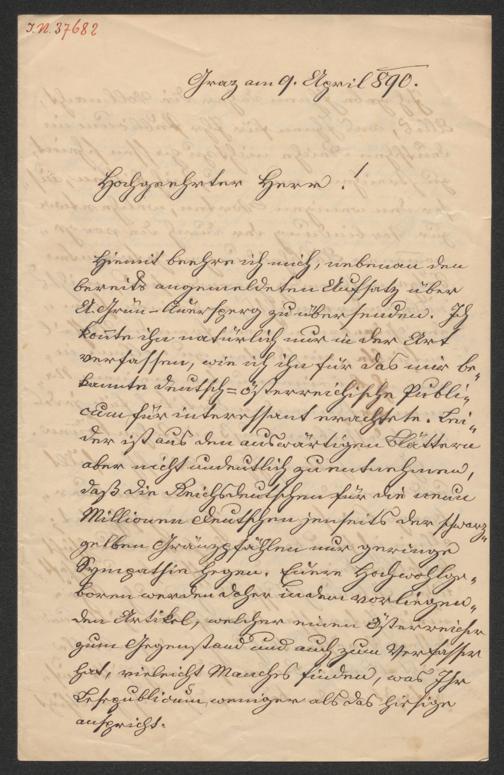 J.N. 37682
Graz am 9. April 890.
Hochgeehrter Herr!
Hiemit beehre ich mich, nebenan den
bereits angemeldeten Aufsatz über
A. Grün-Auersperg zu übersenden. Ich
konnte ihn natürlich nur in der Art
verfassen, wie ich ihn für das mir be-
kannte deutsch=österreichische Publi-
cum für interessant erachtete. Lei-
der ist aus den auswärtigen Blättern
aber nicht undeutlich zu entnehmen,
daß die Reichsdeutschen für die neun
Millionen Deutschen jenseits der schwarz-
gelben Gränzpfählen nur geringe
Sympathie hegen. Euere Hochwohlge-
boren werden daher in dem vorliegen-
den Artikel, welcher einen Österreicher
zum Gegenstand und auch zum Verfasser
hat, vieleicht Manches finden, was Ihr
Lesepublicum weniger als das hiesige
anspricht.